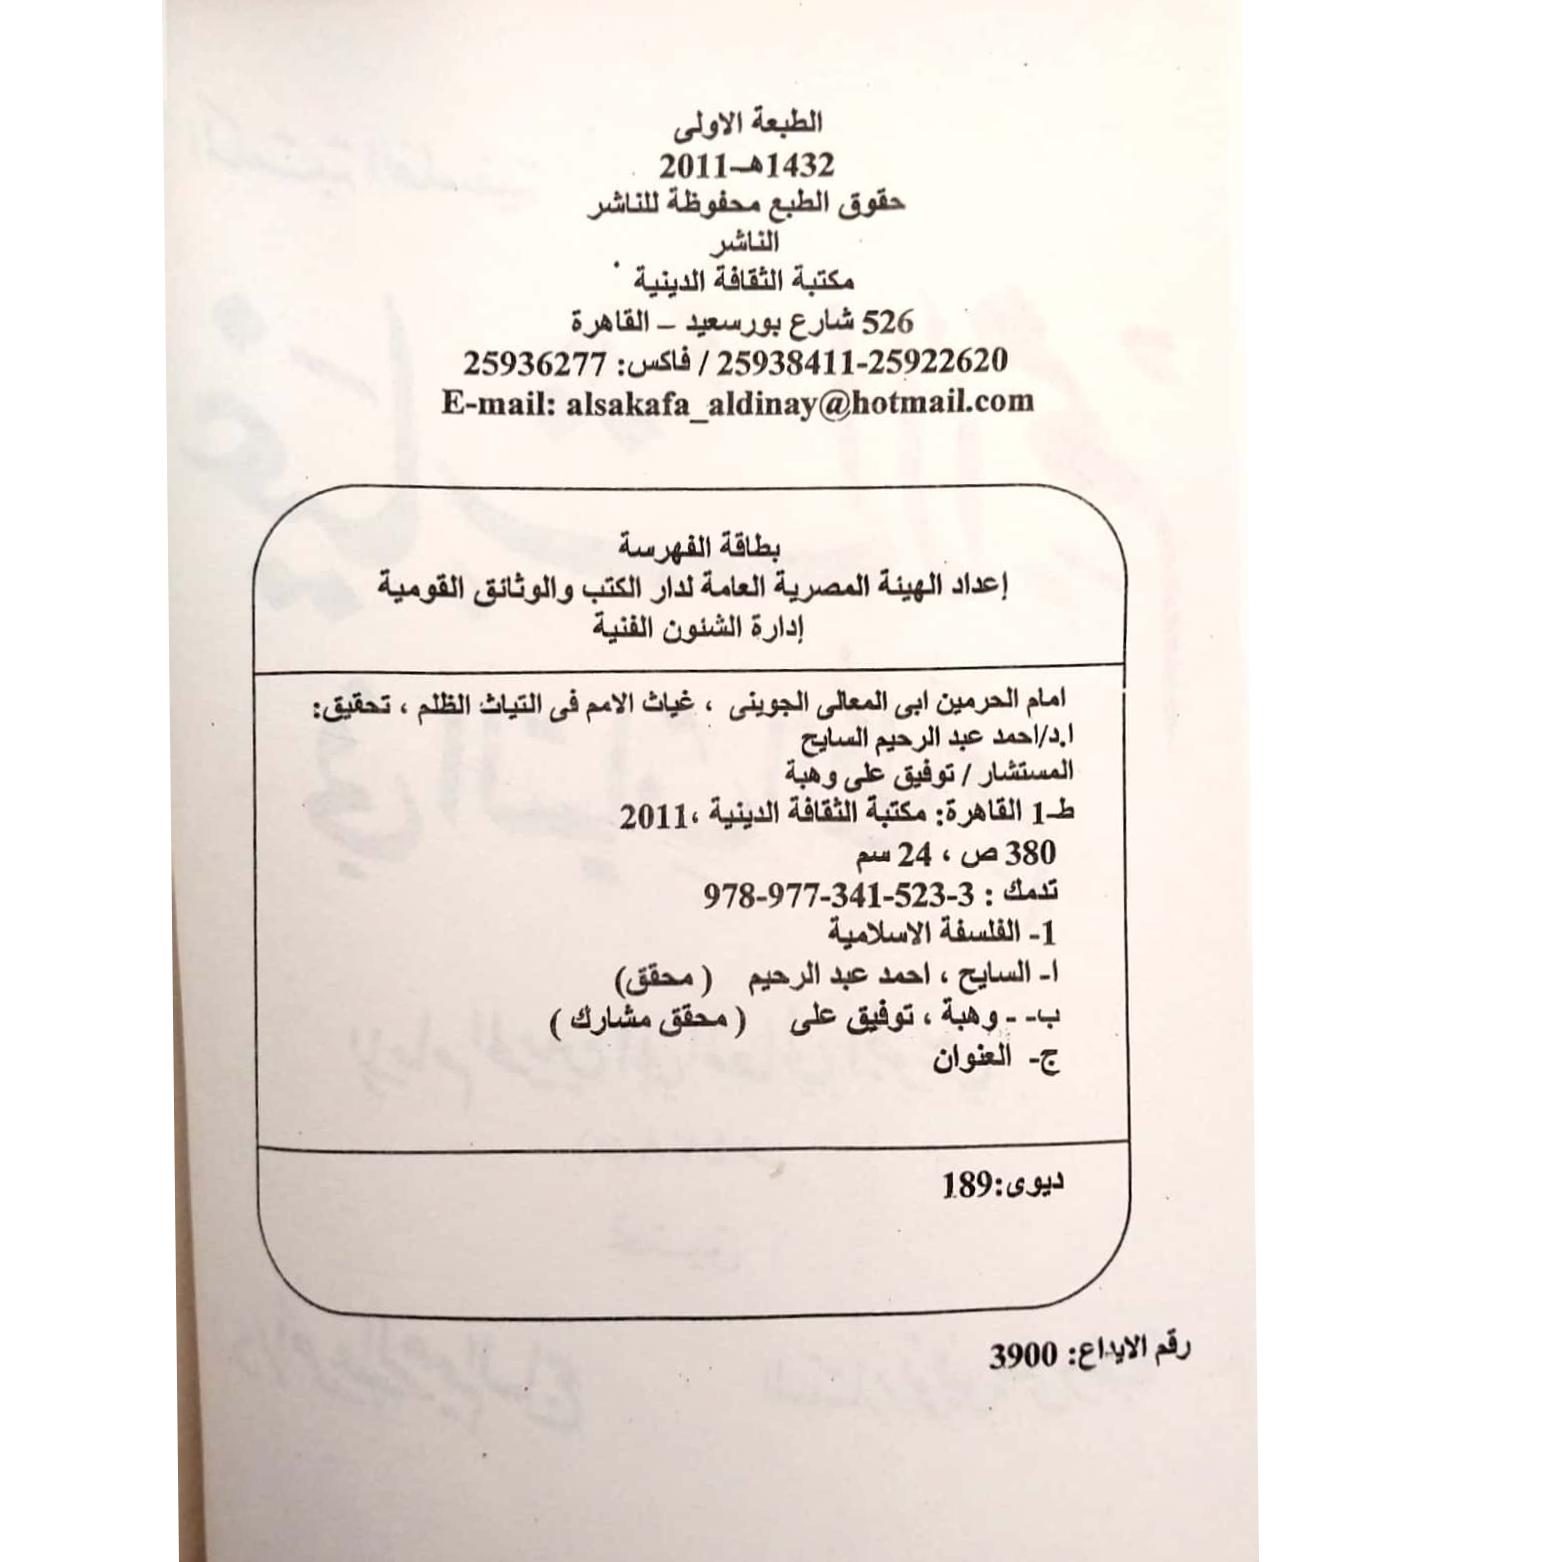 الطبعة الاولى
1432هـ-2011
حقوق الطبع محفوظة للناشر
الناشر
مكتبة الثقافة الدينية
526 شارع بورسعيد – القاهرة
25922620-25938411 / فاكس: 25936277
E-mail: alsakafa_aldinay@hotmail.com
بطاقة الفهرسة
إعداد الهيئة المصرية العامة لدار الكتب والوثائق القومية
إدارة الشئون الفنية
امام الحرمين ابى المعالى الجوينى ، غياث الامم فى التياث الظلم ، تحقيق:
ا.د/احمد عبد الرحيم السايح
المستشار / توفيق على وهبة
ط-1 القاهرة: مكتبة الثقافة الدينية ،2011
380 ص ، 24 سم
تدمك : 3-523-341-977-978
1- الفلسفة الاسلامية
ا- السايح ، احمد عبد الرحيم ( محقق)
ب- - وهبة ، توفيق على ( محقق مشارك )
ج- العنوان
ديوى:189
رقم الايداع: 3900